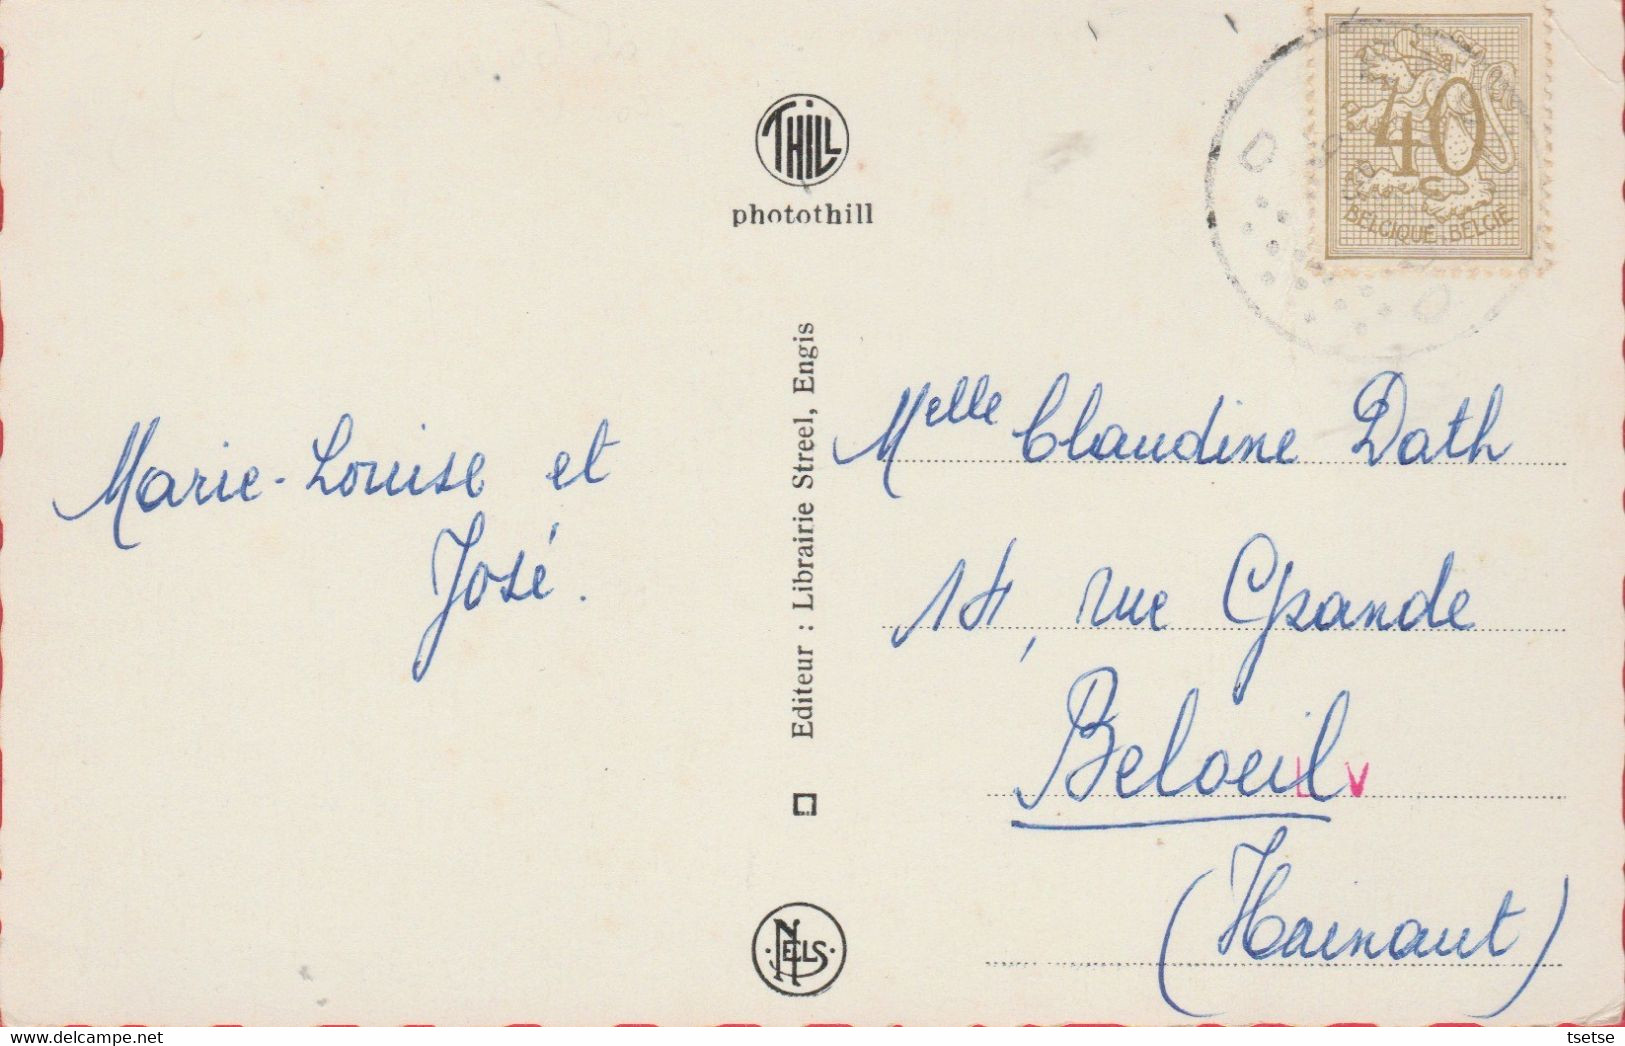 THILL
photothill
40
BELGIQUE · BELGIE
Marie-Louise et
José.
Editeur : Librairie Streel, Engis
NELS
Melle Claudine Dath
14, rue Grande
Beloeil
LV
(Hainaut)
www.delcampe.net
tsetse